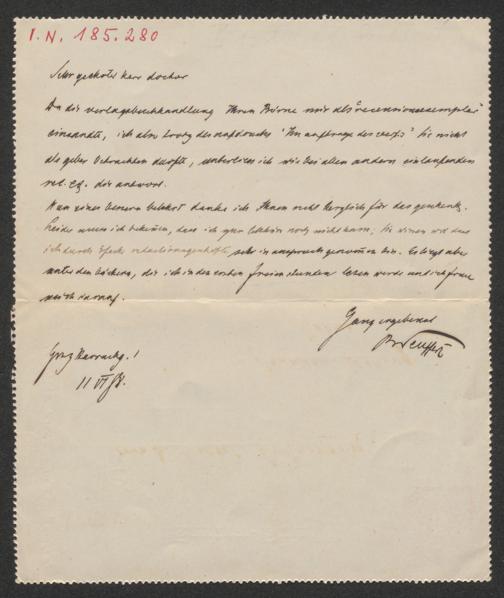 I.N. 185.280
Sehr geehrter herr doctor
Da die verlagsbuchhandlung Ihren Börne mir als "recensionsexemplar"
einsandte, ich also trotz des aufdruckes "Im auftrage des verf's" Sie nicht
als geber betrachten durfte, unterliess ich wie bei allen andern einlaufenden
rec. Ex. die antwort.
Nun eines bessern belehrt danke ich Ihnen recht herzlich für das geschenk.
Leider muss ich bekennen, dass ich zur lektüre noch nicht kam;
ich durch redactionsgeschäfte sehr in anspruch genommen bin. Es liegt aber
unter den büchern, die ich in den ersten freien stunden lesen werde und ich freue
mich darauf.
Ganz ergebenst
BSeuffert
Graz Harrachg. 1
11 VI